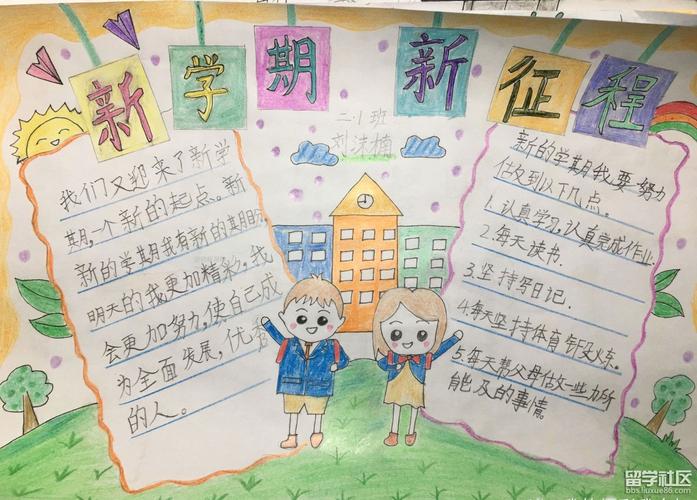 新学期 新征程
二.1班
刘沫楠
我们又迎来了新学
期,一个新的起点。新
新的学期我有新的期盼,
明天的我更加精彩。我
会更加努力,使自己成
为全面发展,优秀
的人。
新的学期我要努力
做到以下几点。
1.认真学习,认真完成作业
2.每天读书.
3.坚持写日记.
4.每天坚持体育锻炼.
5.每天帮父母做一些力所
能及的事情。
留学社区
bbs.liuxue86.com